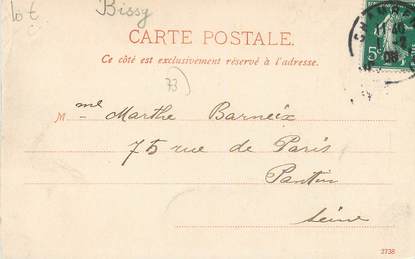 lot Bissy
CARTE POSTALE.
Ce côté est exclusivement réservé à l'adresse.
73
Mme Marthe Barneix
75 rue de Paris
Pantin
Seine
2738
5c